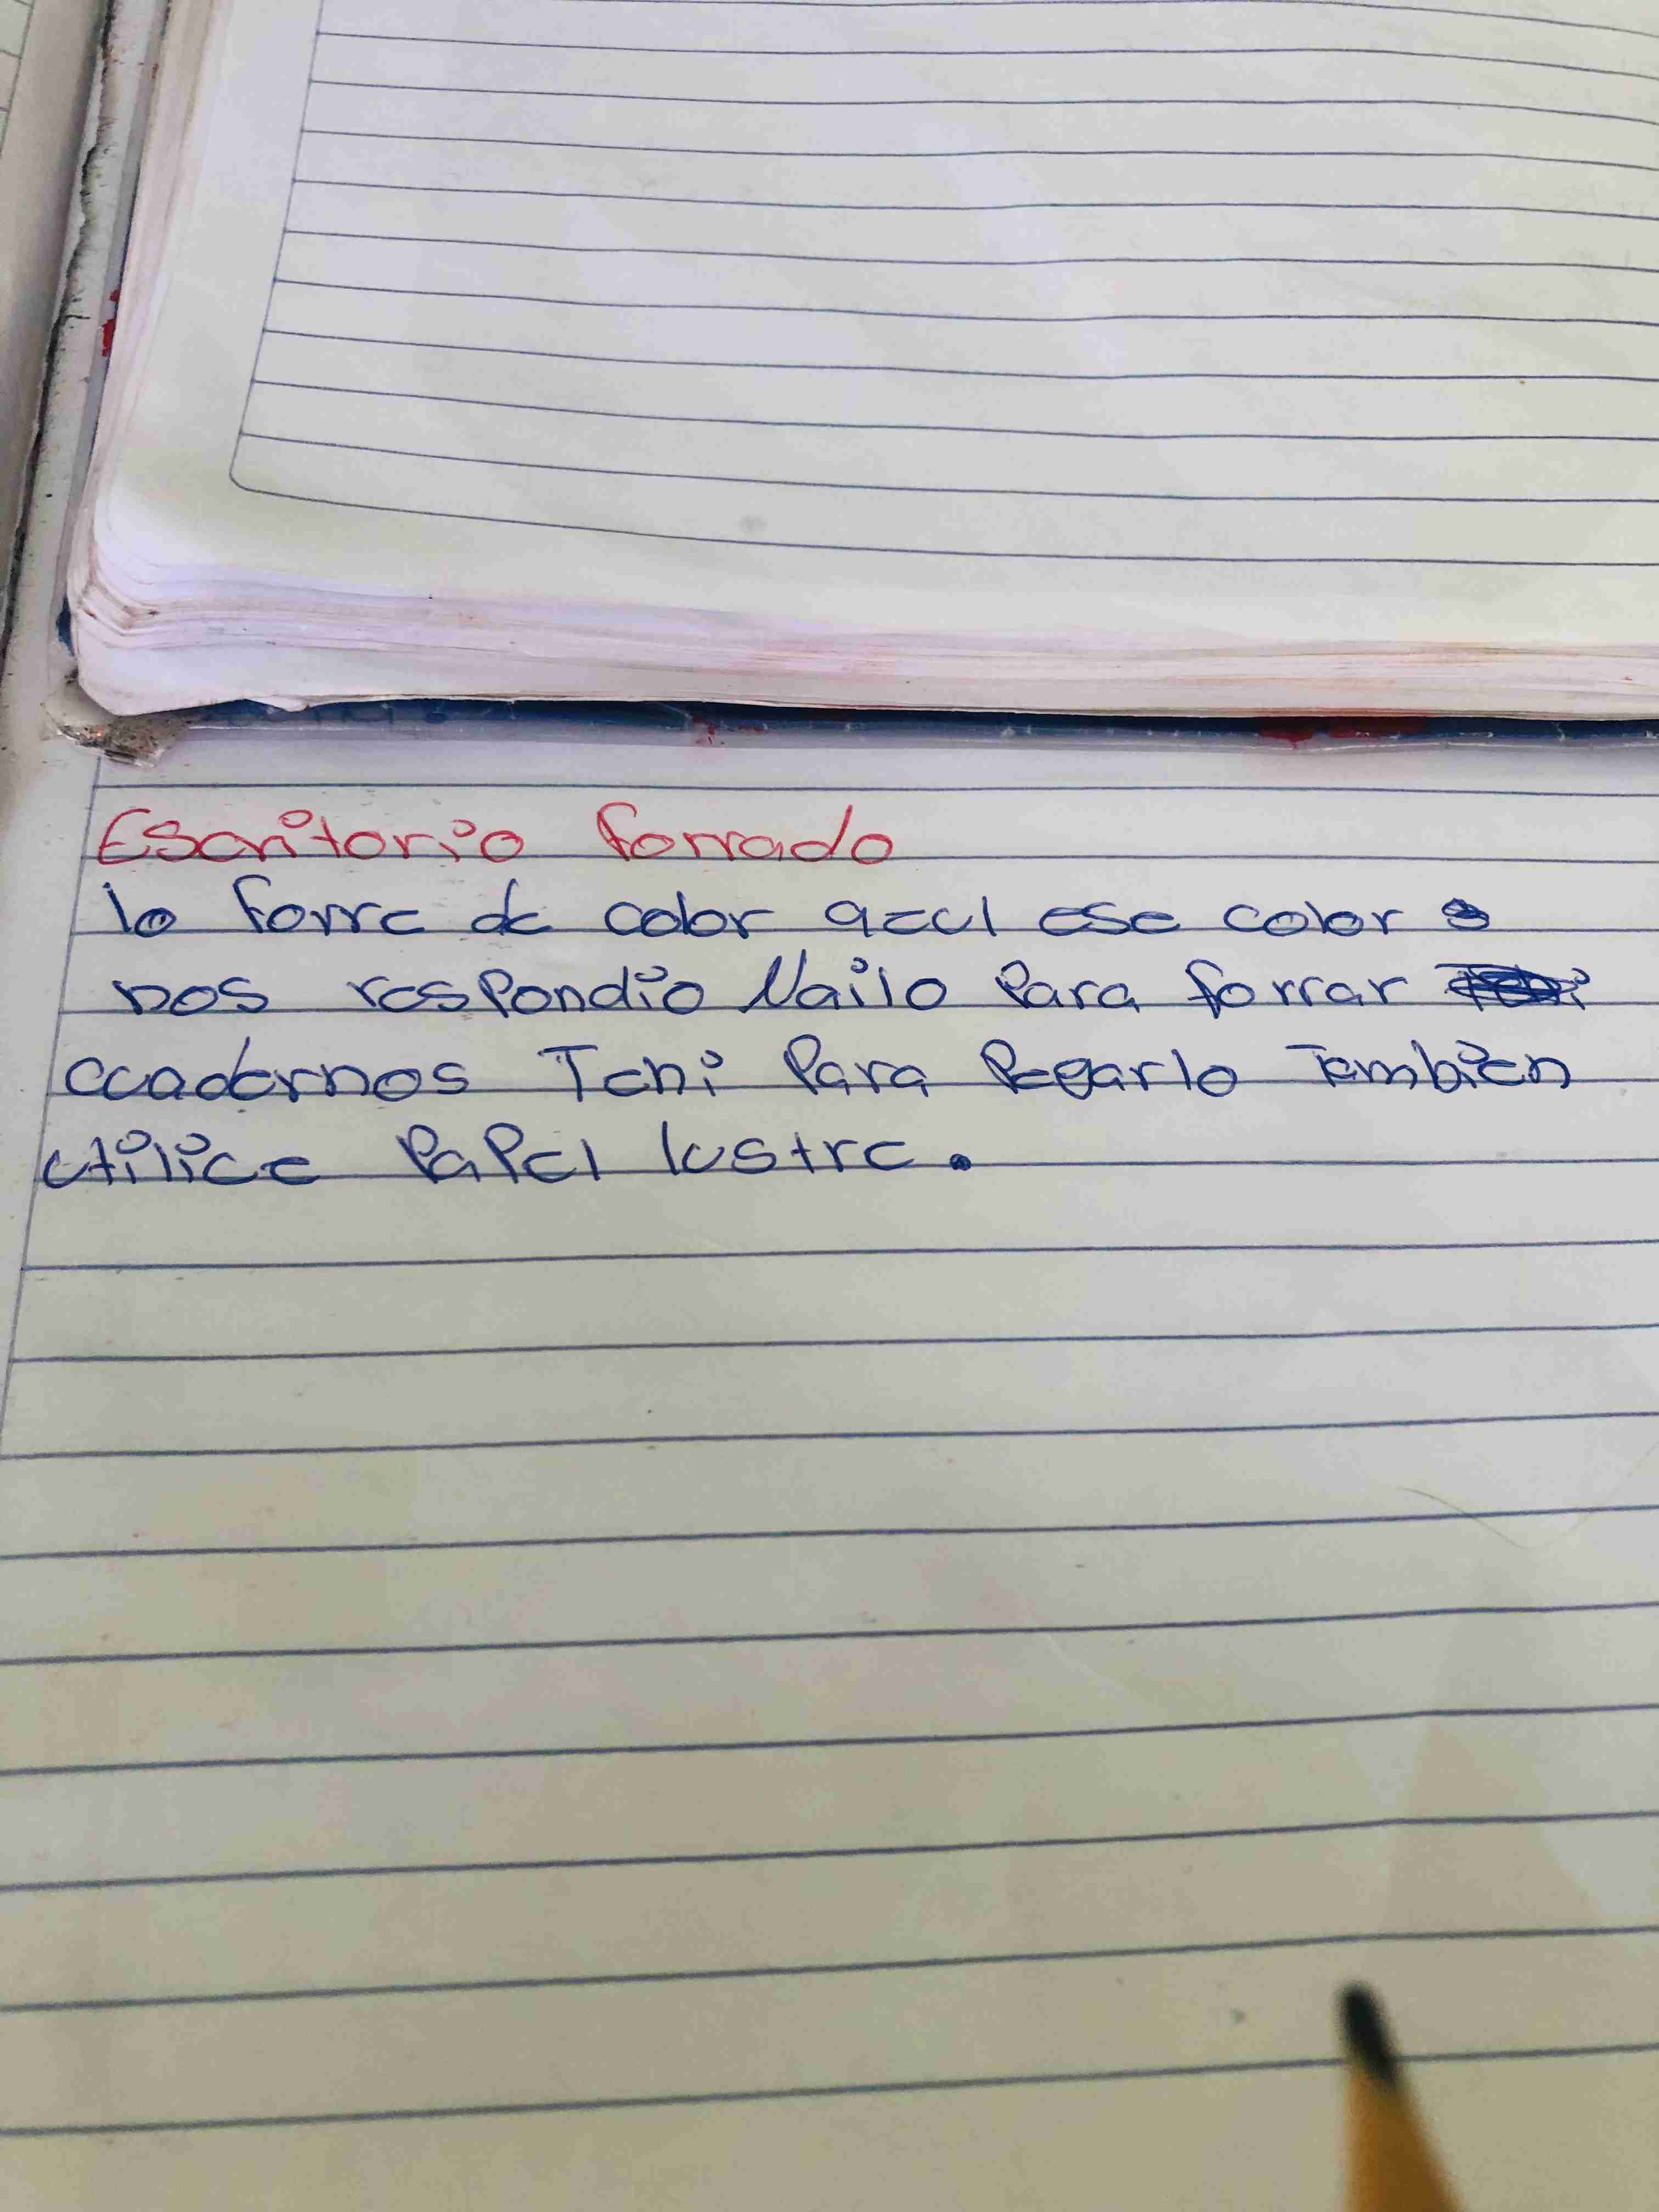 Escritorio forrado
lo forre de color azul ese color
nos respondio Nailo Para forrar
cuadernos Teni Para Pegarlo Tambien
utilice PaPel lustre.